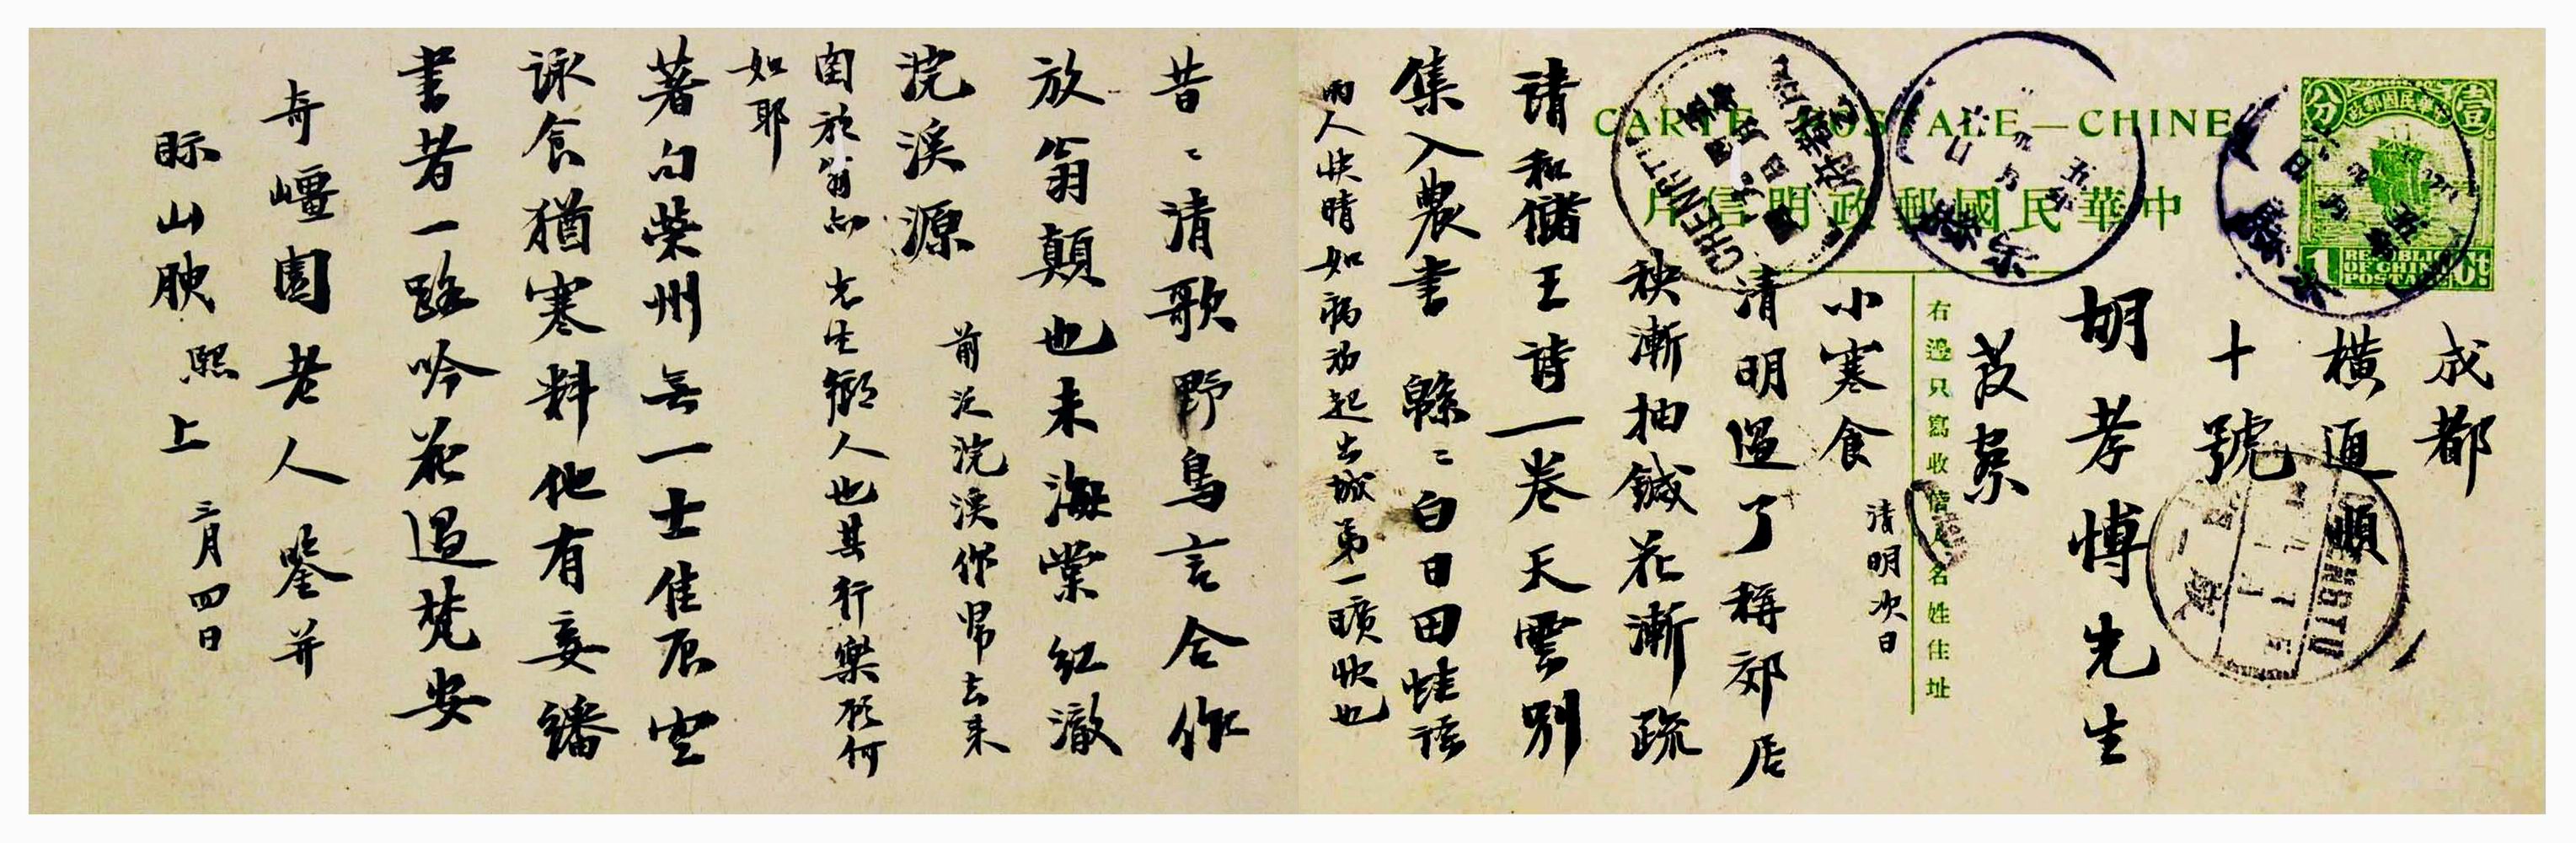 CARTE POSTALE—CHINE
中華民國郵政明信片
中華民國郵政
壹分
REPUBLIC
OF CHINA
POSTAGE
右邊只寫收信人名姓住址
成都
橫通順
十號
胡孝博先生
茇寀
小寒食 清明次日
清明過了稱郊居
秧漸抽鍼花漸疏
請和儲王詩一卷天雲別
集入農書 緜〻白日田蛙語
雨人快晴如病初起出城第一曠快也
昔〻清歌野鳥言合作
放翁顛也未海棠紅澈
浣溪源 前泛浣溪作歸去来
圉放翁句 先生鄉人也其行樂殆何
如耶
著句榮州無一士佳辰空
詠食猶寒料他有妾鐇
書者一路吟花過梵安
奇嶇園老人鑒并
眎山腴 熙上 三月四日